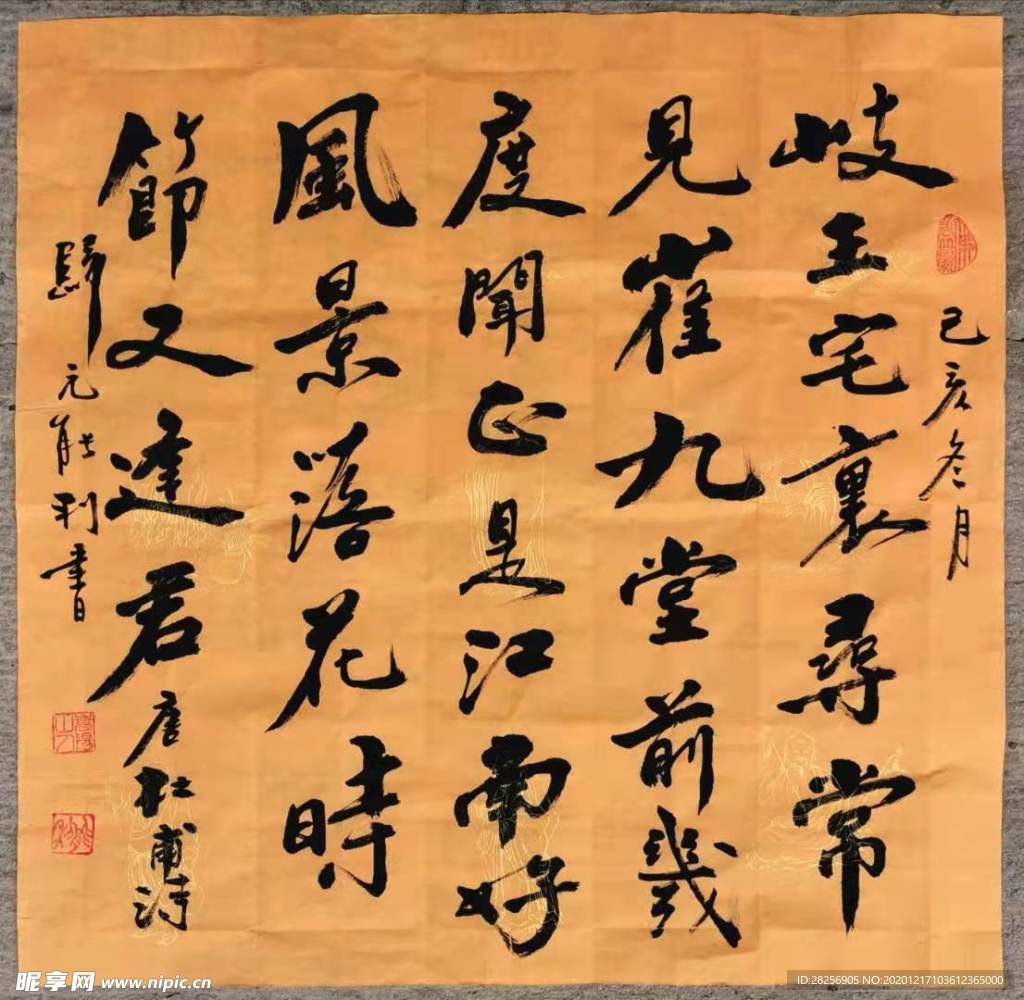 己亥冬月
岐王宅裏尋常
見崔九堂前幾
度聞正是江南好
風景落花時
節又逢君 唐杜甫詩
歸元能利書
昵享网 www.nipic.cn
ID:28256905 NO:20201217103612365000